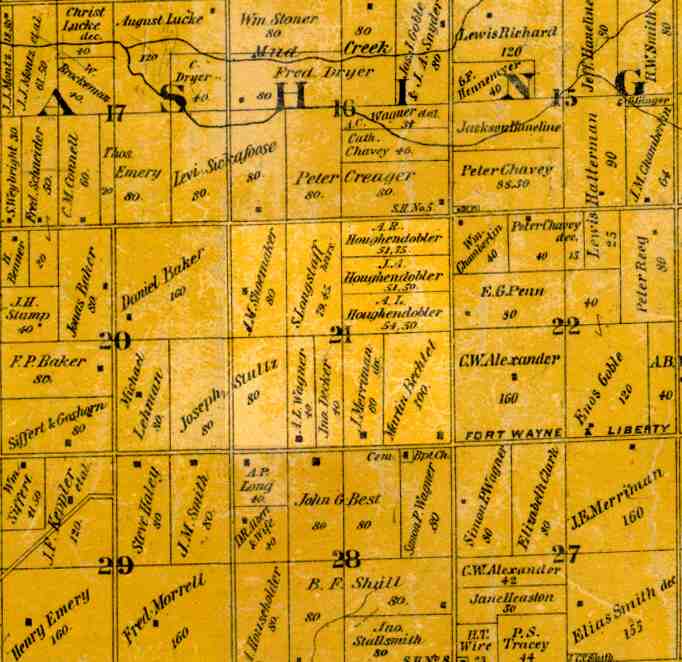 J.J. Montz
J.J. Montz et al.
61.50
Christ
Lucke
dec.
40
W.
Brockeman
40.
August Lucke
120
C.
Dryer
40.
Wm Stoner
80
Mud Creek
Fred. Dryer
80
80
Jos. J. Goble
& J.A. Snyder
80
Lewis Richard
120
40
Jeff Haneline
80
H.W. Smith
80
A S H I N G
17
16
15
S. Weybright 30
Fred. Schneider
50.
C.M. Connell
60.
Thos.
Emery
20
80.
Levi Sickafoose
80.
80
A.C. Wagner
Cath.
Chavey 40.
Peter Creager
80.
80.
S.H. No 5
Jackson Haneline
Peter Chavey
88.50
Lewis Halterman
90
J.M. Chamberlin
64
H
Beaner
20
J.H.
Stump
40
Jonas Baker
80.
Daniel Baker
160
A.M. Shoemaker
80
S. Longstaff
heirs.
79.45.
A.R.
Houghendobler
51.75
J.A.
Houghendobler
51.50.
A.L.
Houghendobler
54.50
Wm.
Chamberlin
40
Peter Chavey
dec.
40
15
25
E.G. Penn
80
40
Peter Reeg
80
20
21
22
F.P. Baker
80.
Siffert & Goshorn
80
Michael
Lehman
80.
Joseph Stultz
80
80
A.L. Wagner
40
Ina Decker
40
J. Merriman
dec.
60
Martin Bechtel
100.
C.W. Alexander
160
Enos Goble
120
A.B.
40
FORT WAYNE
LIBERTY
Wm.
Siffert
41.50
J.F. Kepler
et al.
120.
Steve Haley
80
J.M. Smith
80.
A.P.
Long
40.
D.R. Ilbert
& Wife
40
Cem.
Bpt. Ch.
John G Best
80
80
Simon P. Wagner
80
Simon P. Wagner
80
Elizabeth Clark
80
J.E. Merriman
160
29
28
27
Henry Emery
160.
Fred. Morrell
160
J. Householder
80.
B.F. Shull
80
80.
Jno.
Stallsmith
80
S.H No 8
C.W. Alexander
42
Jane Heaston
30
H.T.
Wire
23
P.S.
Tracey
44
Elias Smith dec
155